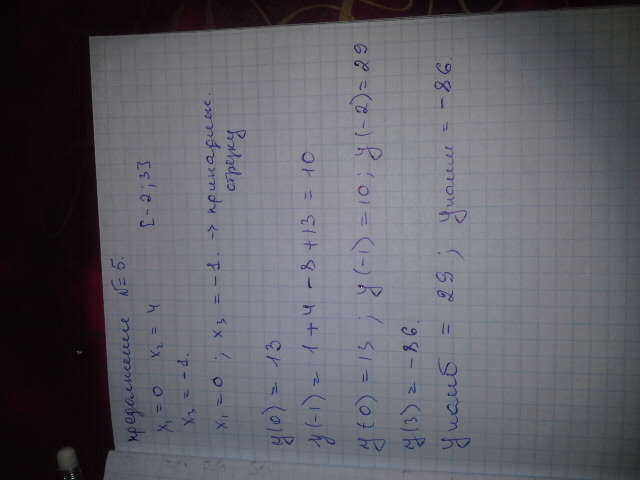 продолжение №5.
x₁ = 0 x₂ = 4 [-2; 3]
x₃ = -1.
x₁ = 0 ; x₃ = -1. → принадлеж.
отрезку
y(0) = 13
y(-1) = 1 + 4 - 8 + 13 = 10
y(0) = 13 ; y(-1) = 10 ; y(-2) = 29
y(3) = -86.
yнаиб = 29 ; yнаим = -86.